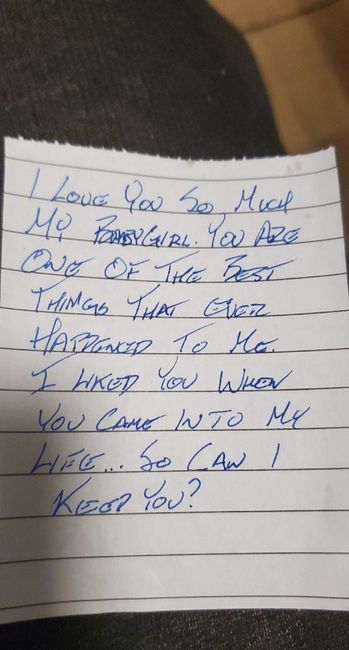 I LOVE YOU SO MUCH
MY BABYGIRL. YOU ARE
ONE OF THE BEST
THINGS THAT EVER
HAPPENED TO ME.
I LIKED YOU WHEN
YOU CAME INTO MY
LIFE... SO CAN I
KEEP YOU?